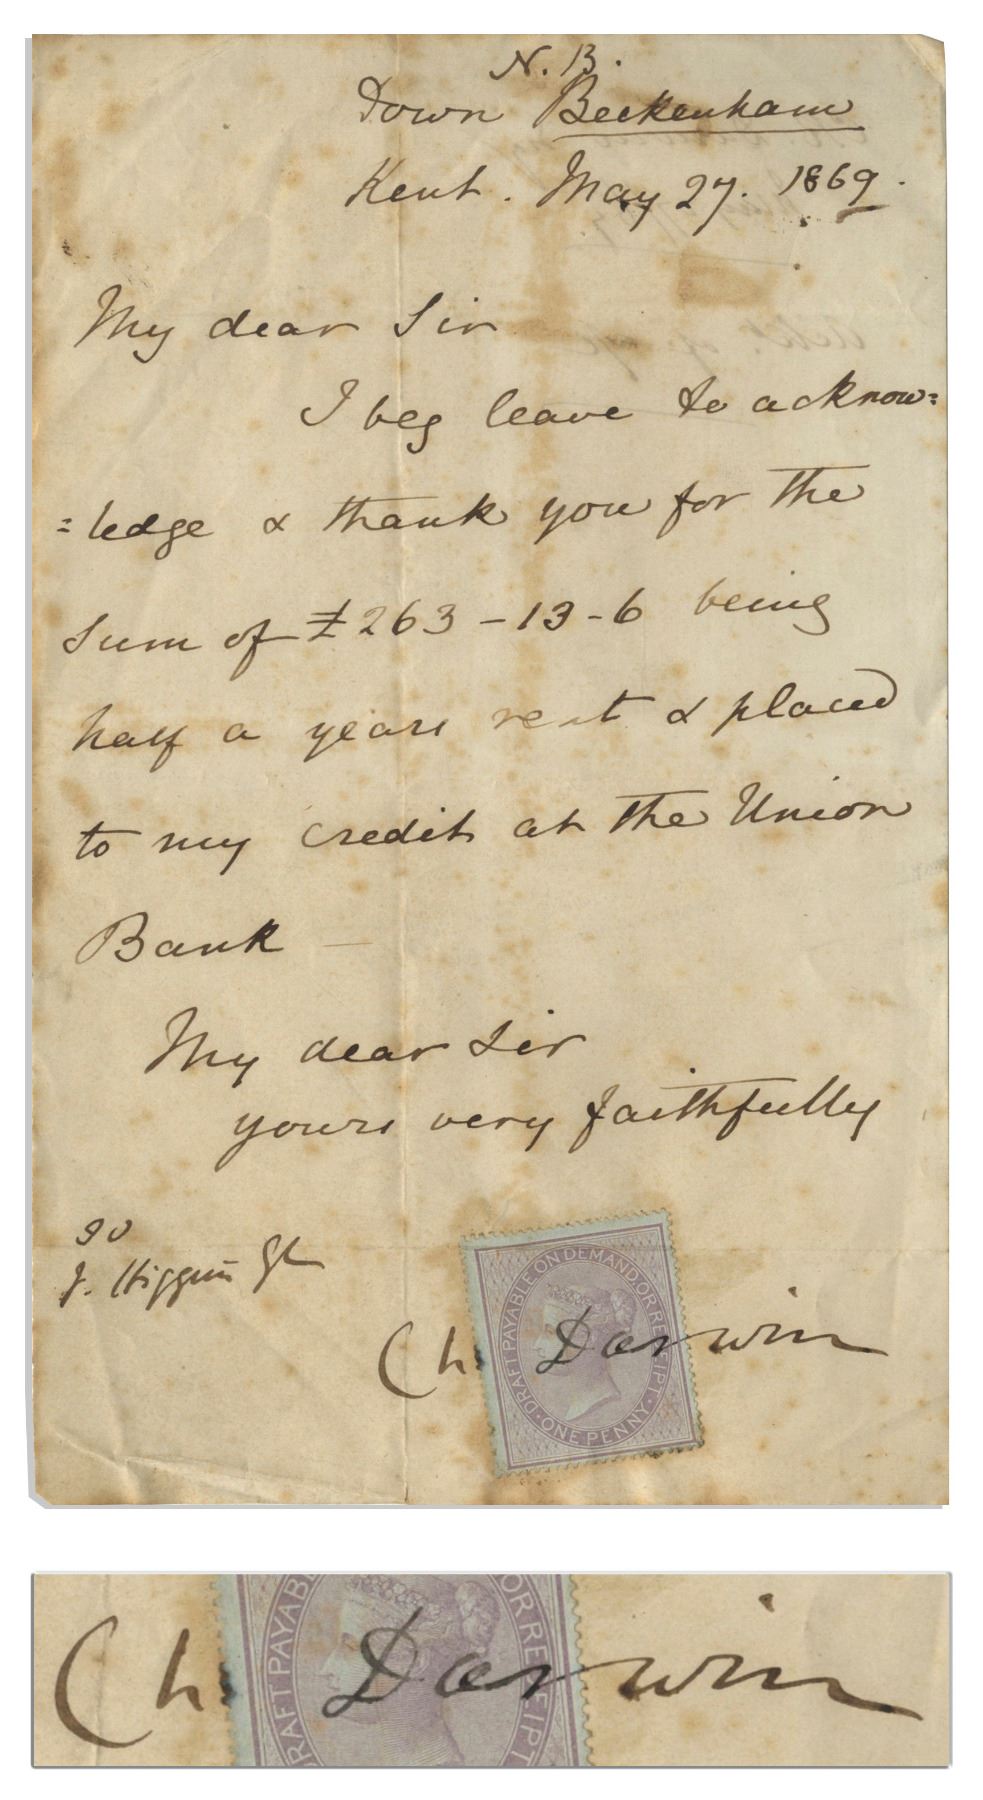 N. B.
Down Beckenham
Kent. May 27. 1869.
My dear Sir
I beg leave to acknow=
=ledge & thank you for the
sum of £263-13-6 being
half a years rent & placed
to my credit at the Union
Bank —
My dear Sir
yours very faithfully
J. Higgins
DRAFT PAYABLE ON DEMAND OR RECEIPT
ONE PENNY
Ch Darwin
RAFT PAYAB OR RECEIPT
Ch Darwin